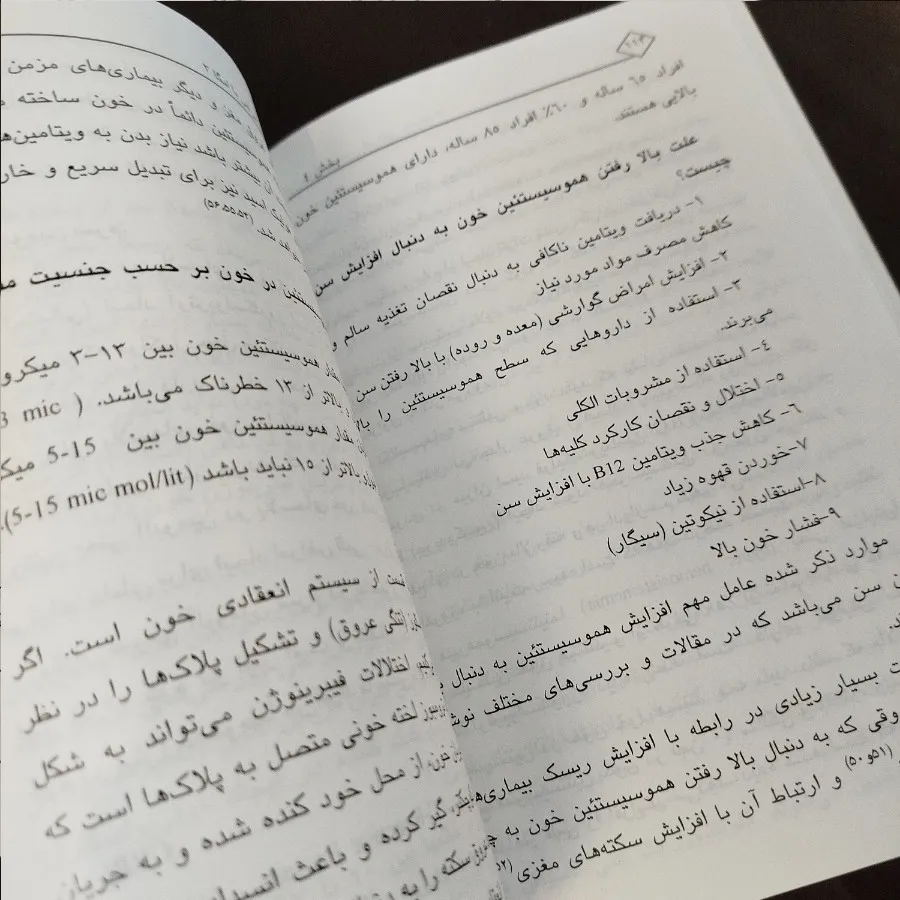 ۲۰۴
بخش ۶
افراد ٦٥ ساله و ٦٠٪ افراد ٨٥ ساله، دارای هموسیستئین خون
بالایی هستند.
علت بالا رفتن هموسیستئین خون به دنبال افزایش سن
چیست؟
۱- دریافت ویتامین ناکافی به دنبال نقصان تغذیه سالم و
کاهش مصرف مواد مورد نیاز
۲- افزایش امراض گوارشی (معده و روده) با بالا رفتن سن
۳- استفاده از داروهایی که سطح هموسیستئین را بالا
می‌برند.
٤- استفاده از مشروبات الکلی
٥- اختلال و نقصان کارکرد کلیه‌ها
٦- کاهش جذب ویتامین B12 با افزایش سن
۷-خوردن قهوه زیاد
۸-استفاده از نیکوتین (سیگار)
۹-فشار خون بالا
موارد ذکر شده عامل مهم افزایش هموسیستئین به دنبال
سن می‌باشد که در مقالات و بررسی‌های مختلف
بسیار زیادی در رابطه با افزایش ریسک
که به دنبال بالا رفتن هموسیستئین خون به
(۵۰و۵۱) و ارتباط آن با افزایش سکته‌های مغزی
مغز و دیگر بیماری‌های مزمن
دائماً در خون ساخته
بیشتر باشد نیاز بدن به
نیز برای تبدیل سریع و
شد. (۵۴،۵۵،۵۶)
در خون بر حسب جنسیت
هموسیستئین خون بین ۱۳-۳
بالاتر از ۱۳ خطرناک می‌باشد. (3 mic
مقدار هموسیستئین خون بین 15-5
بالاتر از ۱۵ نباید باشد (5-15 mic mol/lit).
از سیستم انعقادی خون است. اگر
(تنگی عروق) و تشکیل پلاک‌ها را در نظر
اختلالات فیبرینوژن می‌تواند به شکل
لخته خونی متصل به پلاک‌ها است که
از محل خود کنده شده و به جریان
گیر کرده و باعث
سکته را به